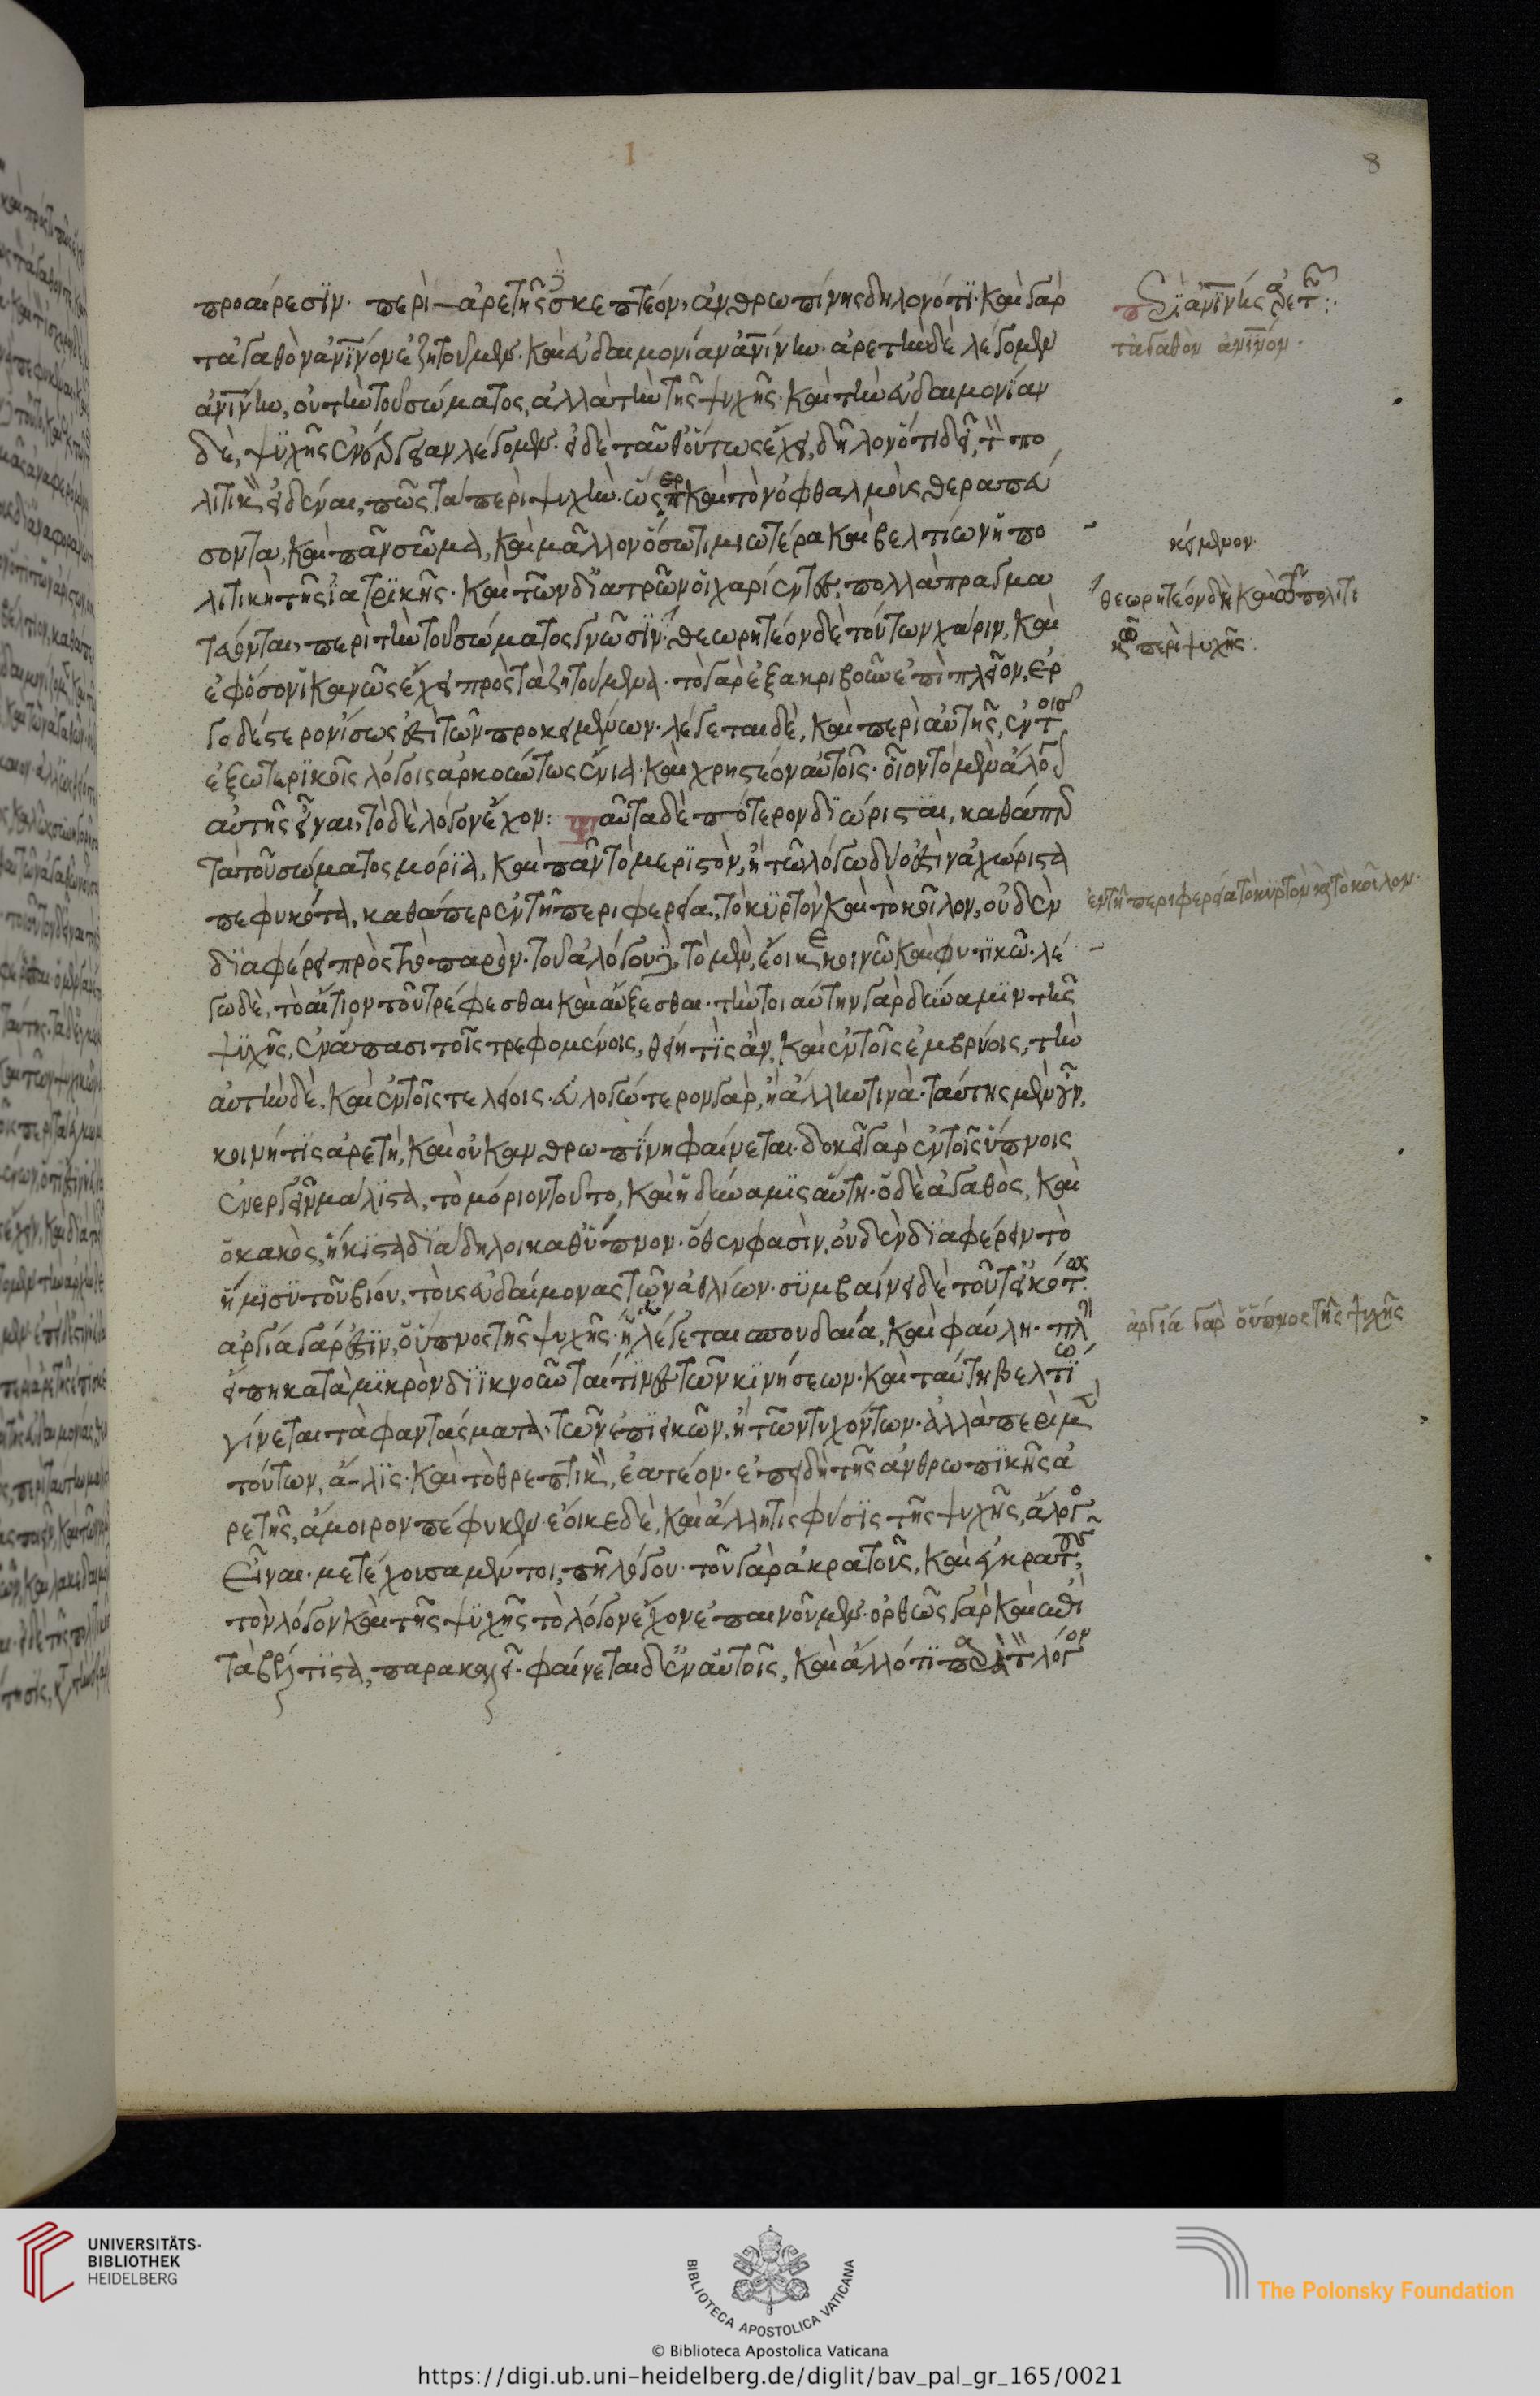 1
8
προαίρεσϊν. περὶ ἀρετῆς σκεπτέον, ἀνθρωπίνης δηλονότι. καὶ γὰρ
τἀγαθὸν ἀνῖνον ἐζητοῦμεν. καὶ εὐδαιμονίαν ἀνίνην. ἀρετὴν δὲ λέγομεν
ἀνΐνην, οὐ τὴν τοῦ σώματος, ἀλλὰ τὴν τῆς ψυχῆς. καὶ τὴν εὐδαιμονίαν
δὲ, ψυχῆς ἐνέργειαν λέγομεν. εἰ δὲ ταῦθ οὕτως ἔχει, δῆλον ὅτι δεῖ, τὸν πο
λιτικὸν εἰδέναι, πῶς τὰ περὶ ψυχὴν. ὥσπερ καὶ τὸν ὀφθαλμοὺς θεραπεύ
σοντα, καὶ πᾶν σῶμα, καὶ μᾶλλον ὅσω τιμιωτέρα καὶ βελτίων ἡ πο
λιτικὴ τῆς ἰατρικῆς. καὶ τῶν δ ἰατρῶν οἱ χαρίεντες, πολλὰ πραγμα
τεύονται, περὶ τὴν τοῦ σώματος γνῶσϊν. θεωρητέον δὲ τούτων χάριν, καὶ
ἐφ ὅσον ἱκανῶς ἔχει πρὸς τὰ ζητούμενα. τὸ γὰρ ἐξακριβοῦν ἐπὶ πλεῖον, ἐρ
γωδέςερον ἴσως ἐςὶ τῶν προκειμένων. λέγεται δὲ, καὶ περὶ αὐτῆς, ἐν τοῖς
ἐξωτερϊκοῖς λόγοις ἀρκούντως ἔνια. καὶ χρηςέον αὐτοῖς. οἷον τὸ μὲν ἄλογ
αὐτῆς εἶναι, τὸ δὲ λόγον ἔχον: ταῦτα δὲ πότερον διώρισται, καθάπερ
τὰ τοῦ σώματος μόρϊα, καὶ πᾶν τὸ μερϊςὸν, ἢ τῶ λόγω δύο ἐςὶν ἀχώριςα
πεφυκότα, καθάπερ ἐν τῆ περιφερεία, τὸ κϋρτὸν καὶ τὸ κοῖλον, οὐδὲν
διαφέρει πρὸς τὸ παρὸν. τοῦ ἀλόγου δὲ, τὸ μὲν, ἔοικε κοινῶ καὶ φυτϊκῶ. λέ
γω δὲ, τὸ αἴτιον τοῦ τρέφεσθαι καὶ αὔξεσθαι. τὴν τοιαύτην γὰρ δύναμϊν τῆς
ψϋχῆς, ἐν ἅπασι τοῖς τρεφομένοις, θείη τὶς ἂν, καὶ ἐν τοῖς ἐμβρύοις, τὴν
αὐτὴν δὲ, καὶ ἐν τοῖς τελείοις. εὐλογώτερον γὰρ, ἢ ἄλλην τινὰ. ταύτης μὲν οὖν,
κοινή τις ἀρετὴ, καὶ οὐκ ανθρωπίνη φαίνεται. δοκεῖ γὰρ ἐν τοῖς ὕπνοις
ἐνεργεῖν μάλιςα, τὸ μόριον τοῦτο, καὶ ἡ δύναμϊς αὕτη. ὁ δὲ ἀγαθὸς, καὶ
ὁ κακὸς, ἥκιςα διάδηλοι καθ ὕπνον. ὅθεν φασὶν, οὐδὲν διαφέρειν τὸ
ἥμϊσϋ τοῦ βίου, τοὺς εὐδαίμονας τῶν ἀθλίων. συμβαίνει δὲ τοῦτ εἰκότως.
ἀργία γάρ ἐςϊν, ὁ ὕπνος τῆς ψυχῆς. ἧ λέγεται σπουδαία, καὶ φαύλη. πλὴν
εἴ πη κατὰ μϊκρὸν διϊκνοῦνταί τινες τῶν κϊνήσεων. καὶ ταύτη βελτίω
γίνεται τὰ φαντάσματα, τῶν ἐπϊεικῶν, ἢ τῶν τυχόντων. ἀλλὰ περὶ μὲν
τούτων, ἅλϊς. καὶ τὸ θρεπτικὸν, ἐατέον. ἐπειδὴ τῆς ἀνθρωπϊκῆς ἀ
ρετῆς, ἄμοιρον πέφυκεν. ἔοικε δὲ, καὶ ἄλλη τὶς φύσϊς τῆς ψυχῆς, ἄλογος
εἶναι. μετέχουσα μέντοι, πῆ λόγου. τοῦ γὰρ ἀκρατοῦς, καὶ ἐγκρατοῦς,
τὸν λόγον καὶ τῆς ψϋχῆς τὸ λόγον ἔχον ἐπαινοῦμεν. ὀρθῶς γὰρ καὶ ἐπὶ
τὰ βέλτϊςα, παρακαλεῖ. φαίνεται δ ἐν αὐτοῖς, καὶ ἄλλό τϊ παρὰ τὸν λόγον
περϊ ἀνΐνης ἀρετῆς:
τἀγαθὸν ἀνῖνον.
κείμενον.
θεωρητέον δὴ καὶ τῶ πολιτι
κῶ περὶ ψυχῆς:
ἐν τῆ περιφερεία τὸ κϋρτὸν κ τὸ κοῖλον.
ἀργία γὰρ ὁ ὕπνος τῆς ψυχῆς
UNIVERSITÄTS-
BIBLIOTHEK
HEIDELBERG
BIBLIOTECA APOSTOLICA VATICANA
The Polonsky Foundation
© Biblioteca Apostolica Vaticana
https://digi.ub.uni-heidelberg.de/diglit/bav_pal_gr_165/0021